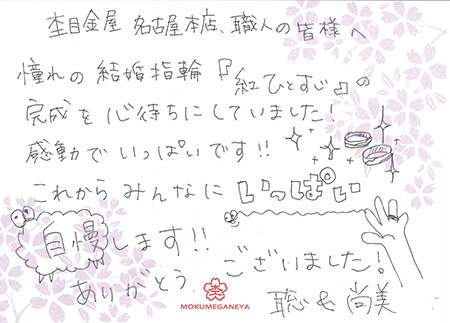 杢目金屋 名古屋本店、職人の皆様へ
憧れの結婚指輪『紅ひとすじ』の
完成を心待ちにしていました!
感動でいっぱいです!!
これからみんなにいっぱい
自慢します!!
ありがとうございました!
聡&尚美
MOKUMEGANEYA